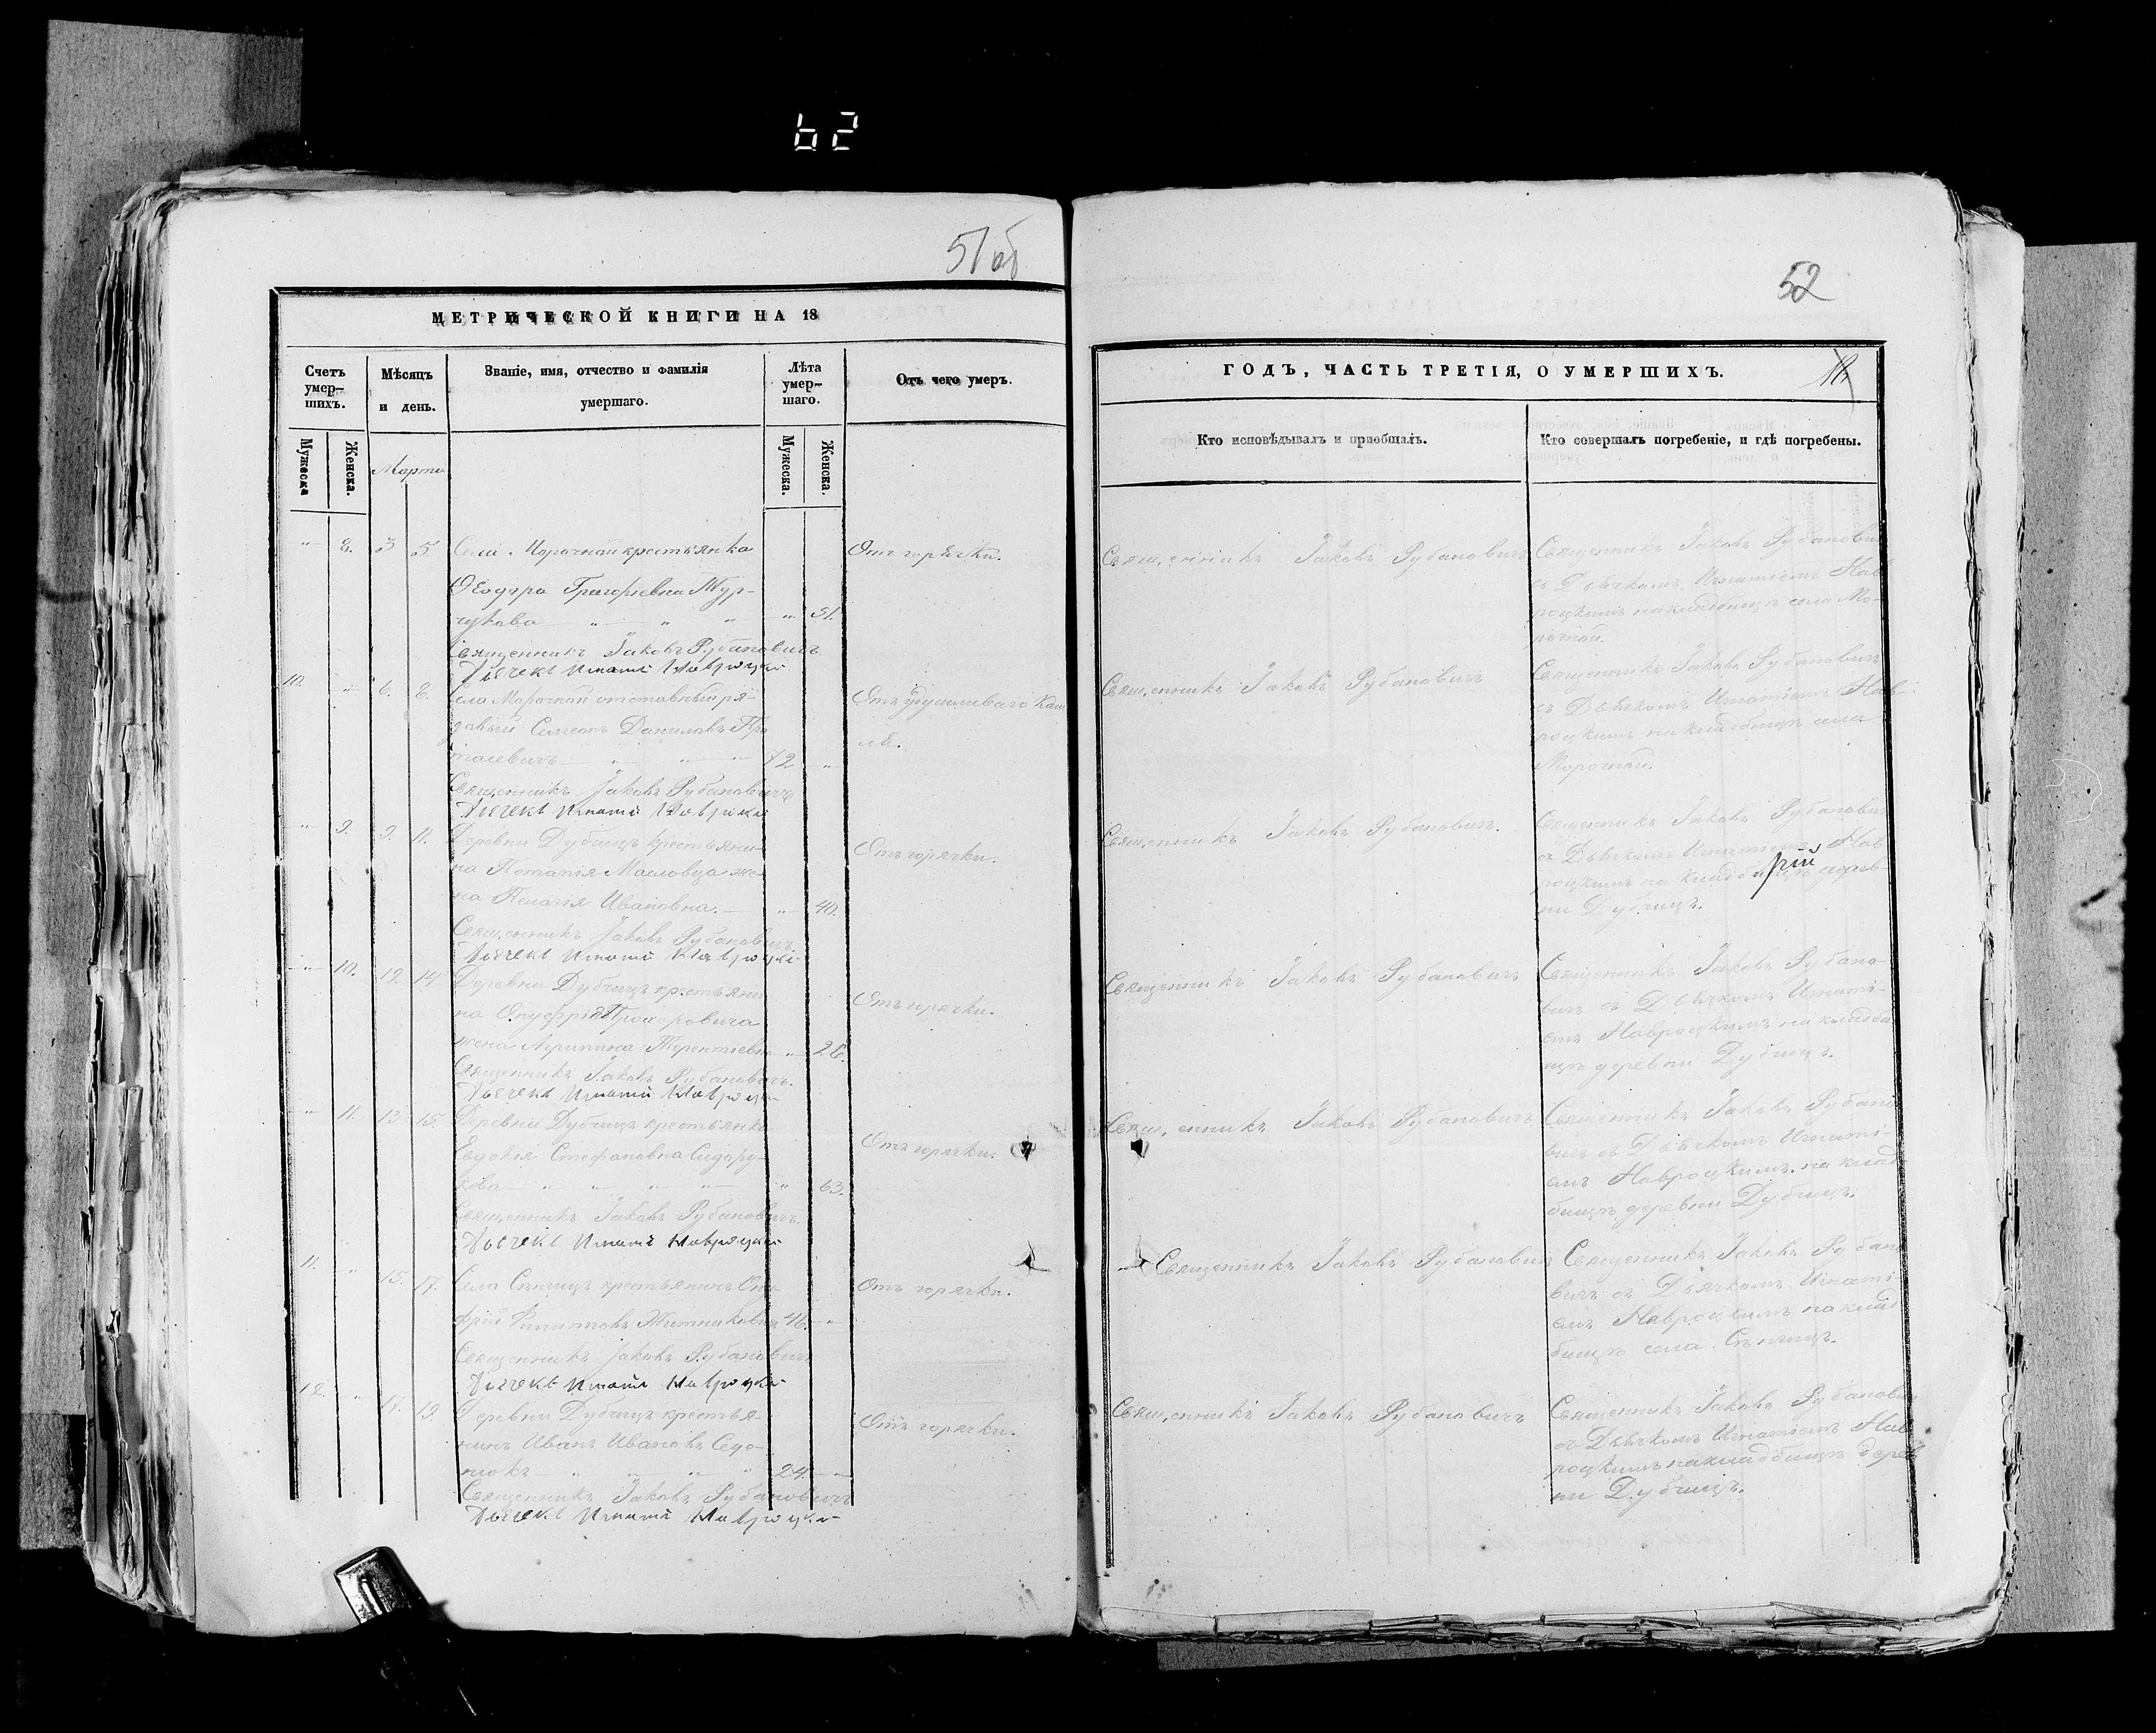 62
51об
МЕТРИЧЕСКОЙ КНИГИ НА 18
Счетъ умер-шихъ.
Мѣсяцъ и день.
Званіе, имя, отчество и фамилія умершаго.
Лѣта умер-шаго.
Отъ чего умеръ.
Мужеска
Женска.
Марта
Мужеска.
Женска.
" 8. 3 5. Села Морочной крестьянка
Отъ горячки.
Ѳеодора Григорьевна
" 51.
Священникъ Іаковъ Рубановичъ
Дьячекъ Игнатій Навроцкій
10. " 6. 8. Села Морочной отставный ря-
Отъ удушливаго каш
довый Симеонъ Даниловъ Про
ля.
тасевичъ " " " 72 "
Священникъ Іаковъ Рубановичъ
Дьячекъ Игнатій Навроцкій
" 9. 9. 11. Деревни Дубчицъ крестьяни-
Отъ горячки.
на Потапія Масловца же-
на Пелагія Ивановна. " 40.
Священникъ Іаковъ Рубановичъ
Дьячекъ Игнатій Навроцкій
" 10. 12 14 Деревни Дубчицъ крестьяни
Отъ горячки.
на Онуфрія Прокоровича
жена Агрипина Терентіевна " 26.
Священникъ Іаковъ Рубановичъ.
Дьячекъ Игнатій Навроцкій
" 11. 13 15. Деревни Дубчицъ крестьянка
Отъ горячки.
Евдокія Стефановна Сидору-
кова " " " " " 63.
Священникъ Іаковъ Рубановичъ.
Дьячекъ Игнатій Навроцкій
11. " 15. 17. Села Сѣнчицъ крестьянинъ Ону
Отъ горячки.
фрій Филиповъ Житниковичъ 46. "
Священникъ Іаковъ Рубановичъ
Дьячекъ Игнатій Навроцкій
12. " 17. 19. Деревни Дубчицъ крестья-
Отъ горячки.
нинъ Иванъ Ивановъ
" " " " 24. "
Священникъ Іаковъ Рубановичъ
Дьячекъ Игнатій Навроцкій
52
ГОДЪ, ЧАСТЬ ТРЕТІЯ, О УМЕРШИХЪ.
Кто исповѣдывалъ и пріобщалъ.
Кто совершалъ погребеніе, и гдѣ погребены.
Священникъ Іаковъ Рубановичъ
Священникъ Іаковъ Рубанович
съ Дьячкомъ Игнатіемъ Нав
роцкимъ на кладбищѣ села Мо-
рочной.
Священникъ Іаковъ Рубановичъ
Священникъ Іаковъ Рубановичъ
съ Дьячкомъ Игнатіемъ Нав-
роцкимъ на кладбищѣ села
Морочной.
Священникъ Іаковъ Рубановичъ.
Священникъ Іаковъ Рубанович
съ Дьячкомъ Игнатіемъ Нав
роцкимъ на кладбищѣ дерев-
ни Дубчицъ.
Священникъ Іаковъ Рубановичъ
Священникъ Іаковъ Рубано-
вичъ съ Дьячкомъ Игнаті-
емъ Навроцкимъ на кладби
щѣ деревни Дубчицъ.
Священникъ Іаковъ Рубановичъ
Священникъ Іаковъ Рубано
вичъ съ Дьячкомъ Игнаті-
емъ Навроцкимъ на клад
бищѣ деревни Дубчицъ.
Священникъ Іаковъ Рубановичъ
Священникъ Іаковъ Рубано
вичъ съ Дьячкомъ Игнаті
емъ Навроцкимъ на клад
бищѣ села Сѣнчицъ.
Священникъ Іаковъ Рубановичъ
Священникъ Іаковъ Рубанович
съ Дьячкомъ Игнатіемъ Нав
роцкимъ на кладбищѣ дерев
ни Дубчицъ.